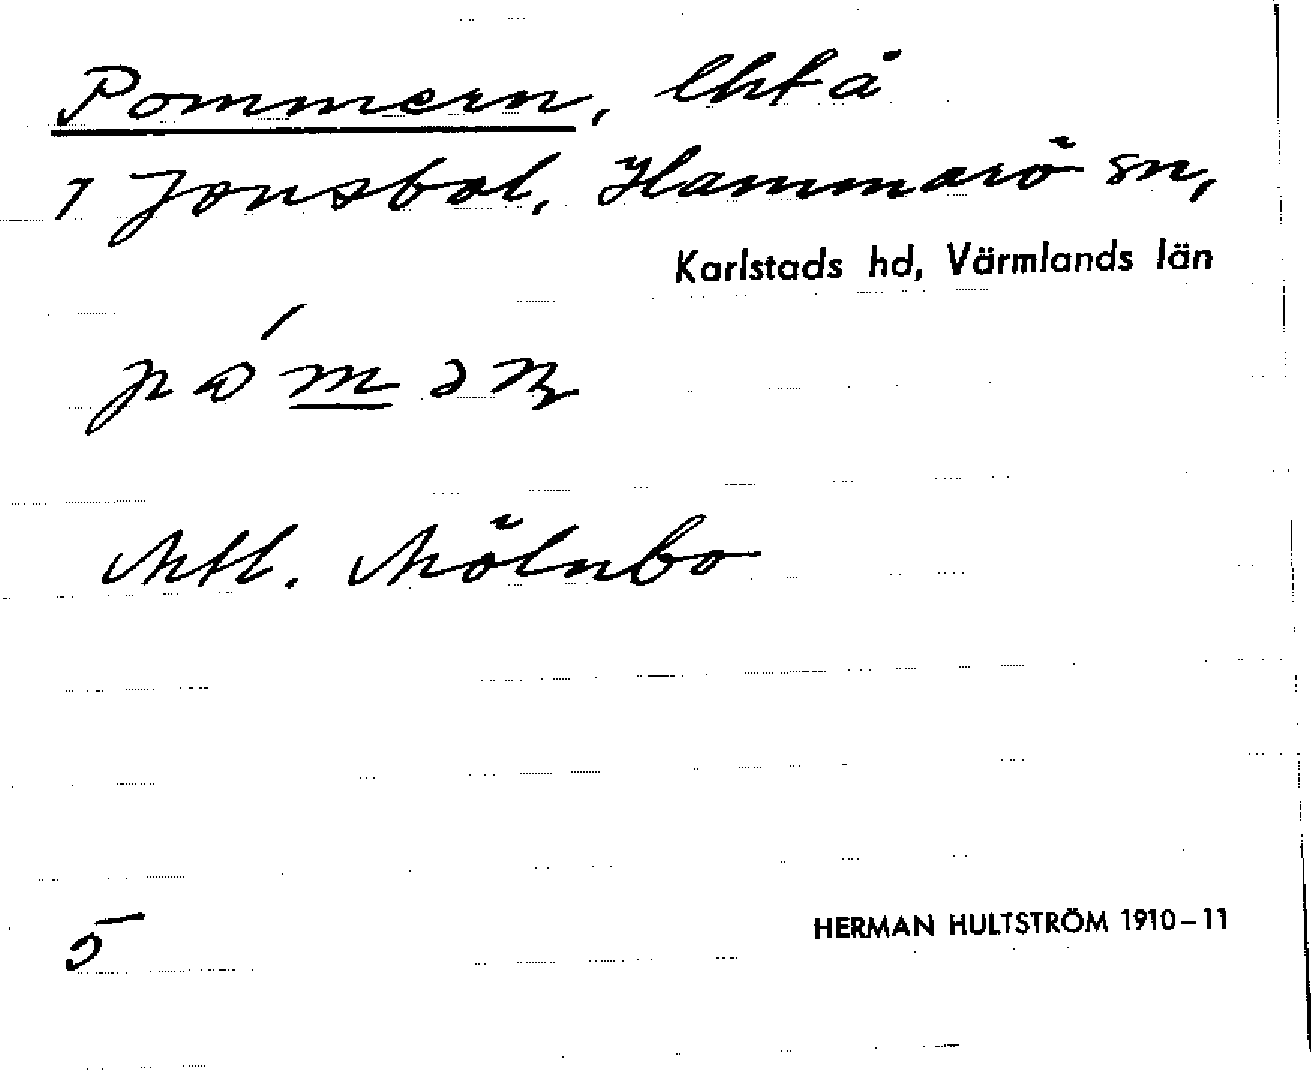 Pommern, lht å
1 Jonsbol, Hammarö sn,
Karlstads hd, Värmlands län
Mtl. Mölnbo
5
HERMAN HULTSTRÖM 1910–11